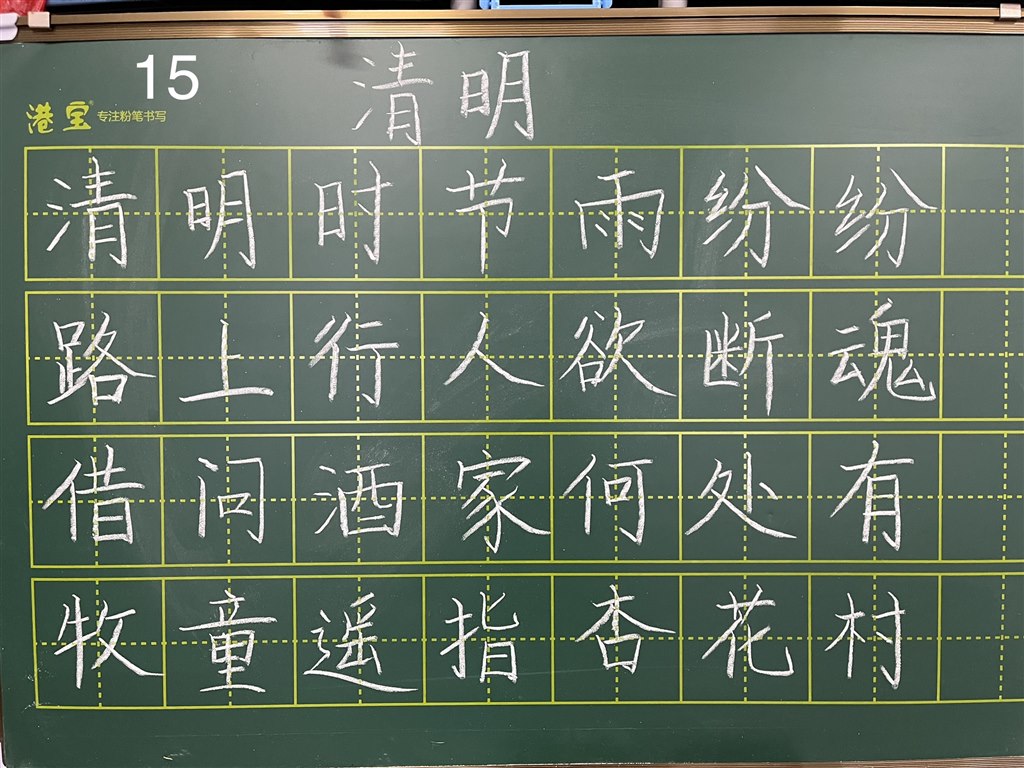 15
清明
港宝® 专注粉笔书写
清明时节雨纷纷
路上行人欲断魂
借问酒家何处有
牧童遥指杏花村